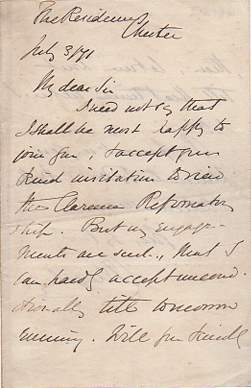 The Residence
Chester
July 3/71
My dear Sir
I need not say that
I shall be most happy to
join you, & accept your
kind invitation to view
the Clarence Reformatory
ship. But my engage-
ments are such, that I
can hardly accept uncond-
itionally till tomorrow
evening. Will you kindly